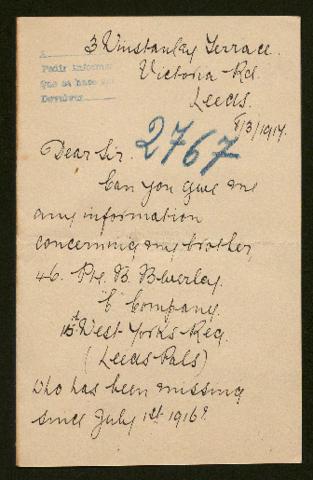 3 Winstanley Terrace.
Victoria Rd.
Leeds.
8/3/1917.
A
Pedir informes
Que se hace
Devolver
2767
Dear Sir.
Can you give me
any information
concerning my brother
46. Pte. B. Beverley.
"C" Company.
15th West Yorks Reg.
(Leeds Pals)
who has been missing
since July 1st 1916?